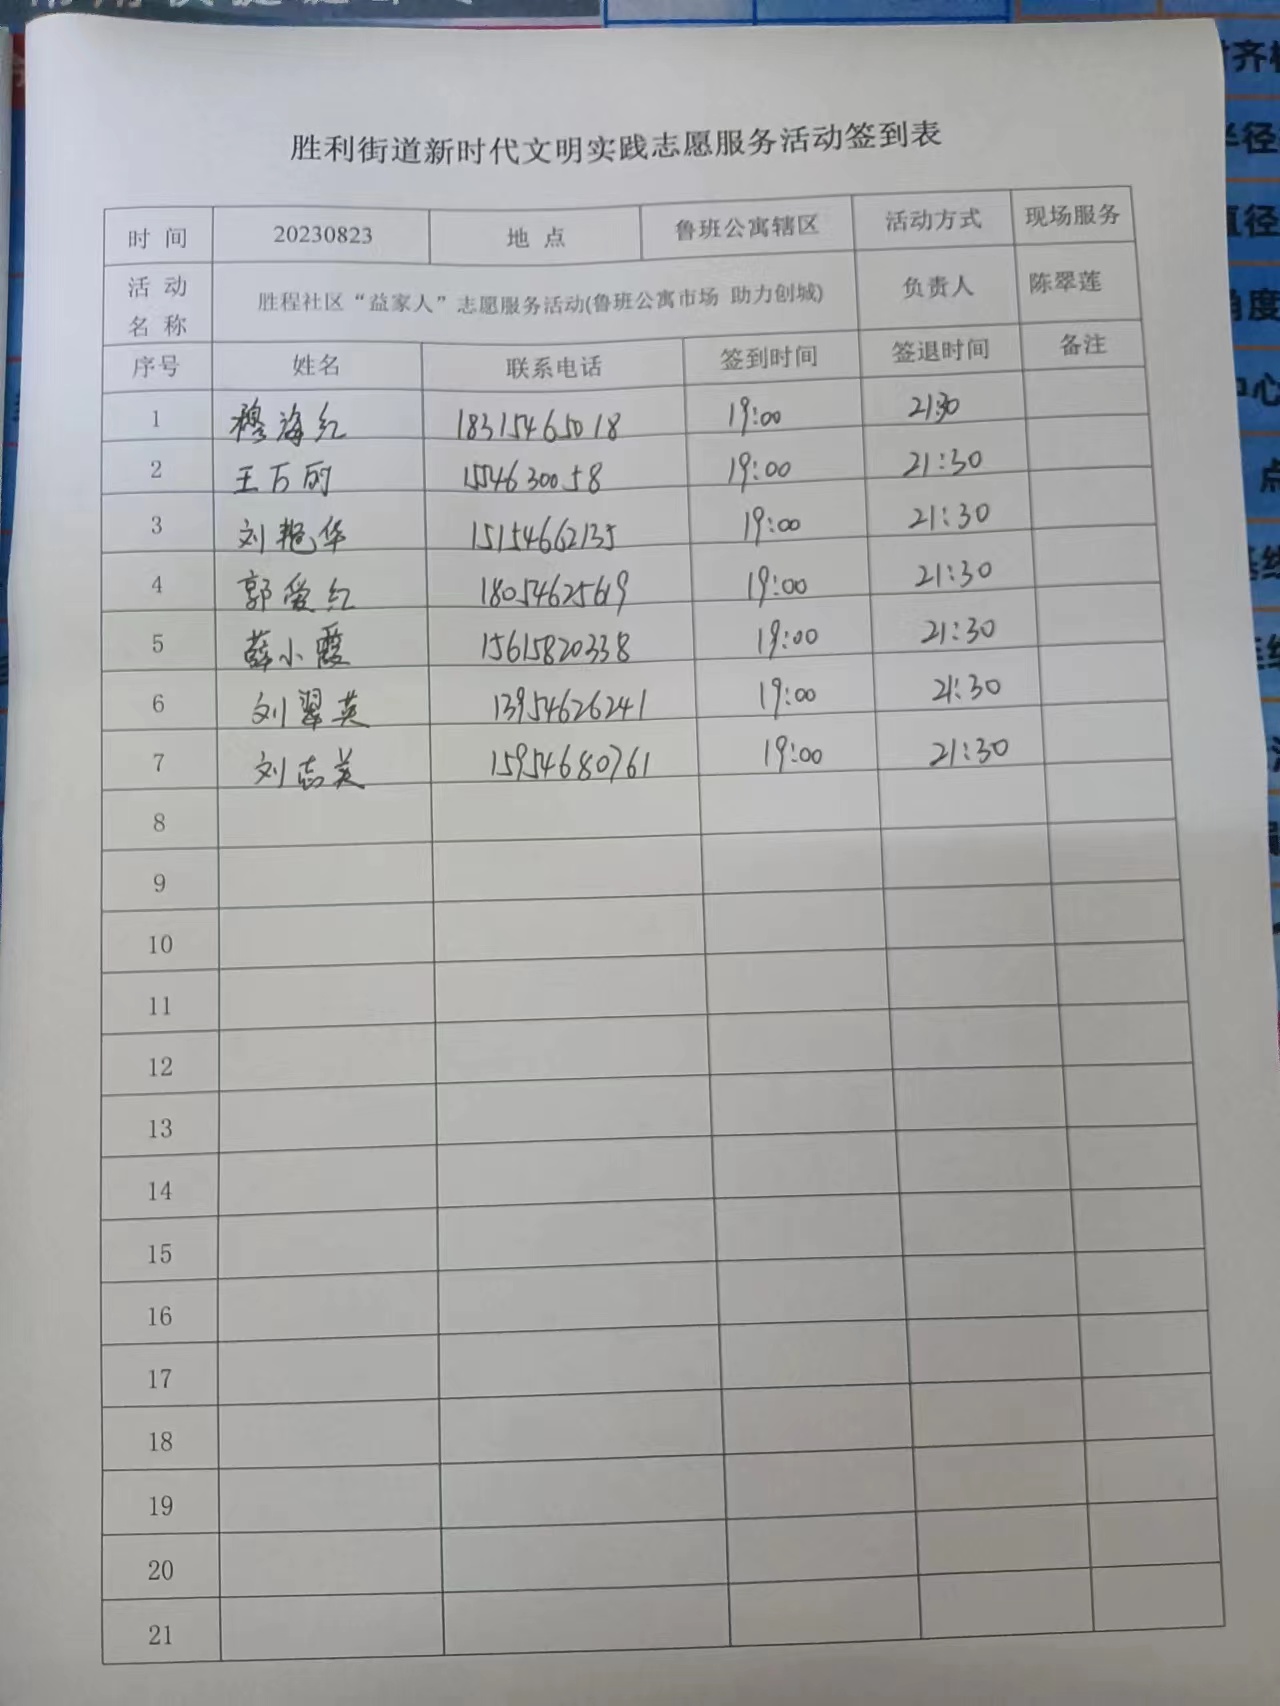 胜利街道新时代文明实践志愿服务活动签到表
时 间 20230823 地 点 鲁班公寓辖区 活动方式 现场服务
活 动 名 称 胜程社区“益家人”志愿服务活动(鲁班公寓市场 助力创城) 负责人 陈翠莲
序号 姓名 联系电话 签到时间 签退时间 备注
1 穆海红 18315465018 19:00 21:30
2 王万丽 1554630058 19:00 21:30
3 刘艳华 15154662135 19:00 21:30
4 郭爱红 18054625619 19:00 21:30
5 薛小霞 15615820338 19:00 21:30
6 刘翠英 13954626241 19:00 21:30
7 刘志美 15954680761 19:00 21:30
8
9
10
11
12
13
14
15
16
17
18
19
20
21